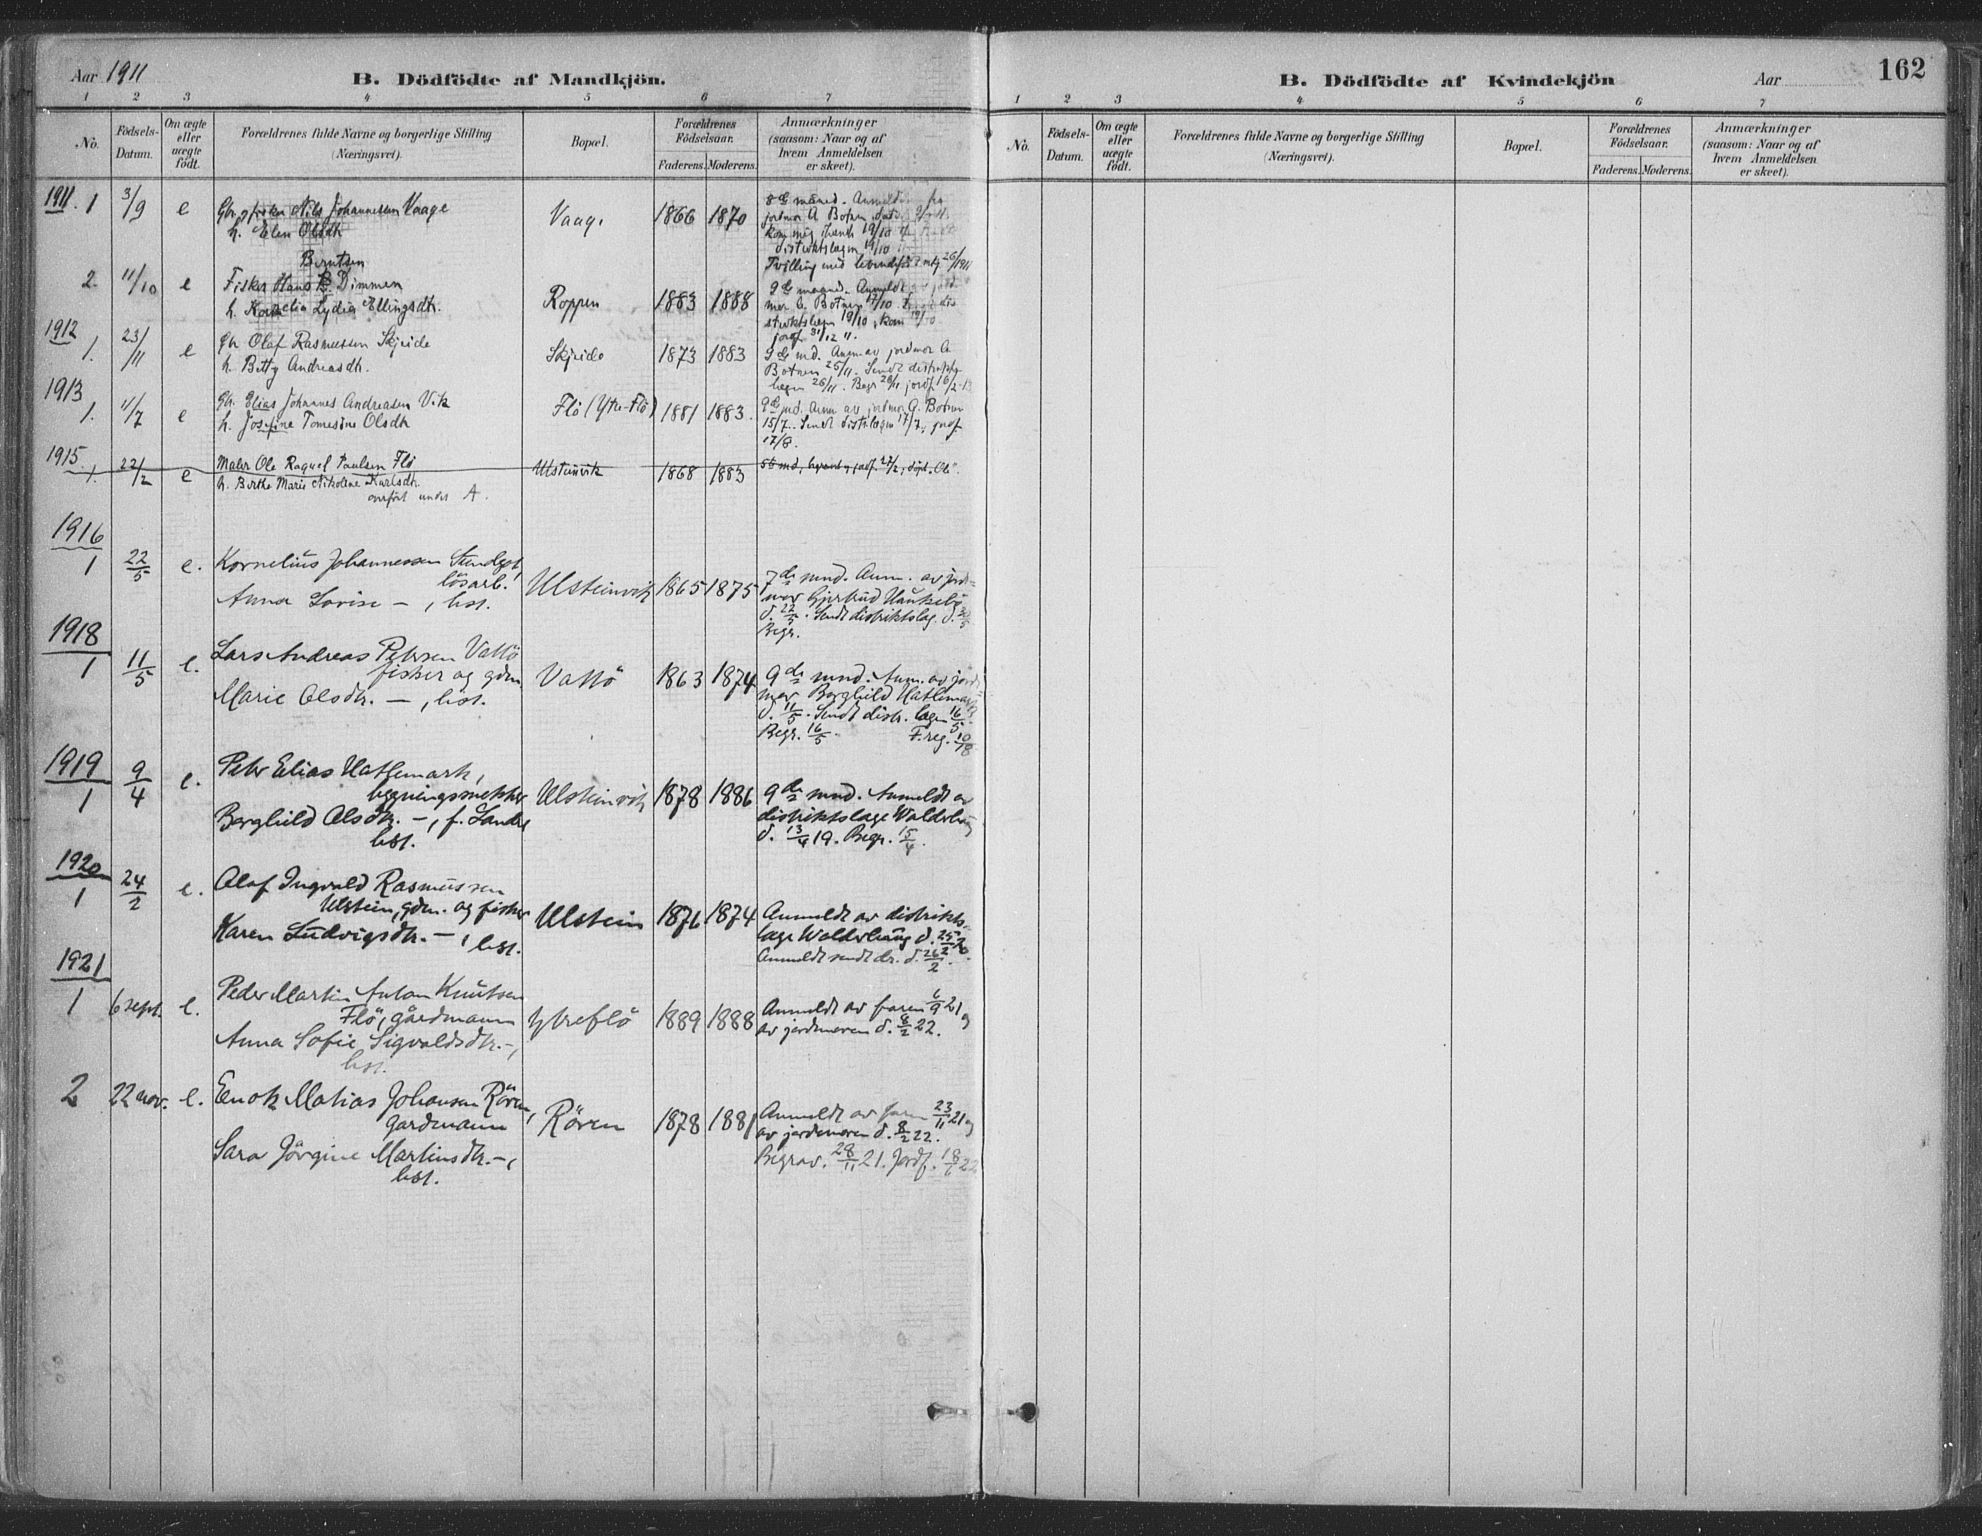 Aar 1911
B. Dödfödte af Mandkjön.
1 2 3 4 5 6 7
No.
Födsels-Datum.
Om ægte eller uægte födt.
Forældrenes fulde Navne og borgerlige Stilling
(Næringsvei).
Bopæl.
Forældrenes Födselsaar.
Faderens. Moderens.
Anmærkninger
(saasom: Naar og af
hvem Anmeldelsen
er skeet).
1911. 1 3/9 e Gbr. fisker Nils Johannessen Vaage Vaage 1866 1870 8de maaned. Anmeldt fra
h. Elen Olsdtr jordmor A Botnen
19/10
distriktslægen 19/10
Tvilling med levendefødt 26/1911
Berntsen
2. 11/10 e Fisker Hans B. Dimmen Roppen 1883 1888 9de maaned. Anmeldt av jord
h. Kornelia Lydia Ellingsdtr. mor A. Botnen 17/10
striktslægen 19/10, kom 19/10
jordf. 31/12 11.
1912
1. 23/11 e Gbr Olaf Rasmussen Skjeide Skjeide 1873 1883 9de md. Anm av jordmor A
h. Betty Andreasdtr. Botnen 25/11. Sendt distrikts
lægen 26/11. Begr 28/11 jordf 16/2-13
1913
1. 11/7 e Gbr. Elias Johannes Andreasen Vik Flö (Ytre-Flö) 1881 1883. 9de md. Anm av jordmor A. Botnen
h. Josefine Tomesine Olsdtr 15/7. Sendt distr.lægen 17/7, jordf
17/8.
1915.
1. 22/2 e Maler Ole Raquel Paulsen Flö Ulsteinvik 1868 1883 5te md, begravet, jordf. 27/2, döpt "Ole".
h. Berthe Marie Nikoline Karlsdtr.
overført under A.
1916
1 22/5 e. Kornelius Johannessen Ulsteinvik 1865 1875 7de mnd. Anm. av jord-
lösarb. mor Gjertrud Haukebö
Anna Lovise –, hst. d. 22/5. Sendt distriktslæg. d.
Begr.
1918
1 11/5 e. Lars Andreas Petersen Vattö Vattö 1863 1874 9de mnd. Anm. av jord-
fisker og gdm mor Borghild Hatlemark
Marie Olsdtr. –, hst. d. 11/5. Sendt distr. lægen 16/5.
Begr. 16/5. F.reg. 10/18
1919
1 9/4 e. Peter Elias Hatlemark, Ulsteinvik 1878 1886 9de mnd. Anmeldt av
bygningssnekker distriktslæge Walderhaug
Borghild Olsdtr. –, f. Sande d. 13/4 19. Begr. 15/4.
hst.
1920
1 24/2 e. Olaf Ingvald Rasmussen
Ulstein, gdm. og fisker Ulstein 1876 1874 Anmeldt av distrikts-
Karen Ludvigsdtr. –, hst. læge Walderhaug d. 25/2 20.
Anmeldt sendt dr. d. 26/2.
1921
1 6 sept. e. Peder Martin Anton Knutsen Ytreflö 1889 1888 Anmeldt av faren 6/9 21 og
Flö, gårdmann av jordmoren d. 8/2 22.
Anna Sofie Sigvaldsdtr. –,
hst.
2 22 nov. e. Enok Matias Johansen Rören, Rören 1878 1881 Anmeldt av faren 23/11 21 og
gardmann av jordmoren d. 8/2 22.
Sara Jörgine Martinsdtr. –, Begrav. 28/11 21. Jordf. 18/6 22
hst.
B. Dödfödte af Kvindekjön
Aar
162
1 2 3 4 5 6 7
No.
Födsels-Datum.
Om ægte eller uægte födt.
Forældrenes fulde Navne og borgerlige Stilling
(Næringsvei).
Bopæl.
Forældrenes Födselsaar.
Faderens. Moderens.
Anmærkninger
(saasom: Naar og af
hvem Anmeldelsen
er skeet).